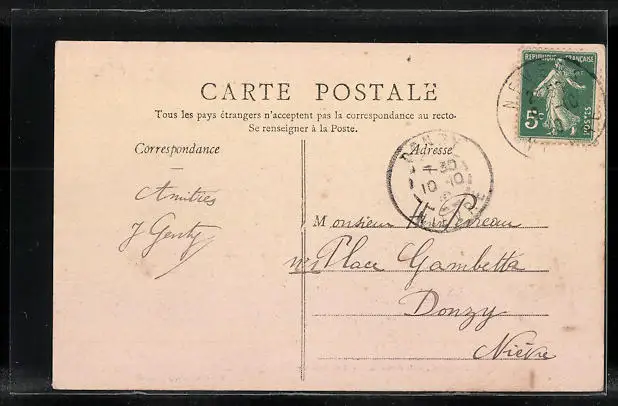 CARTE POSTALE
Tous les pays étrangers n'acceptent pas la correspondance au recto-
Se renseigner à la Poste.
Correspondance
Adresse
REPUBLIQUE FRANÇAISE
5c
POSTES
4 30
10 10
NIEVRE
Amitiés
J Genty
Monsieur Perreau
Place Gambetta
Donzy
Nièvre